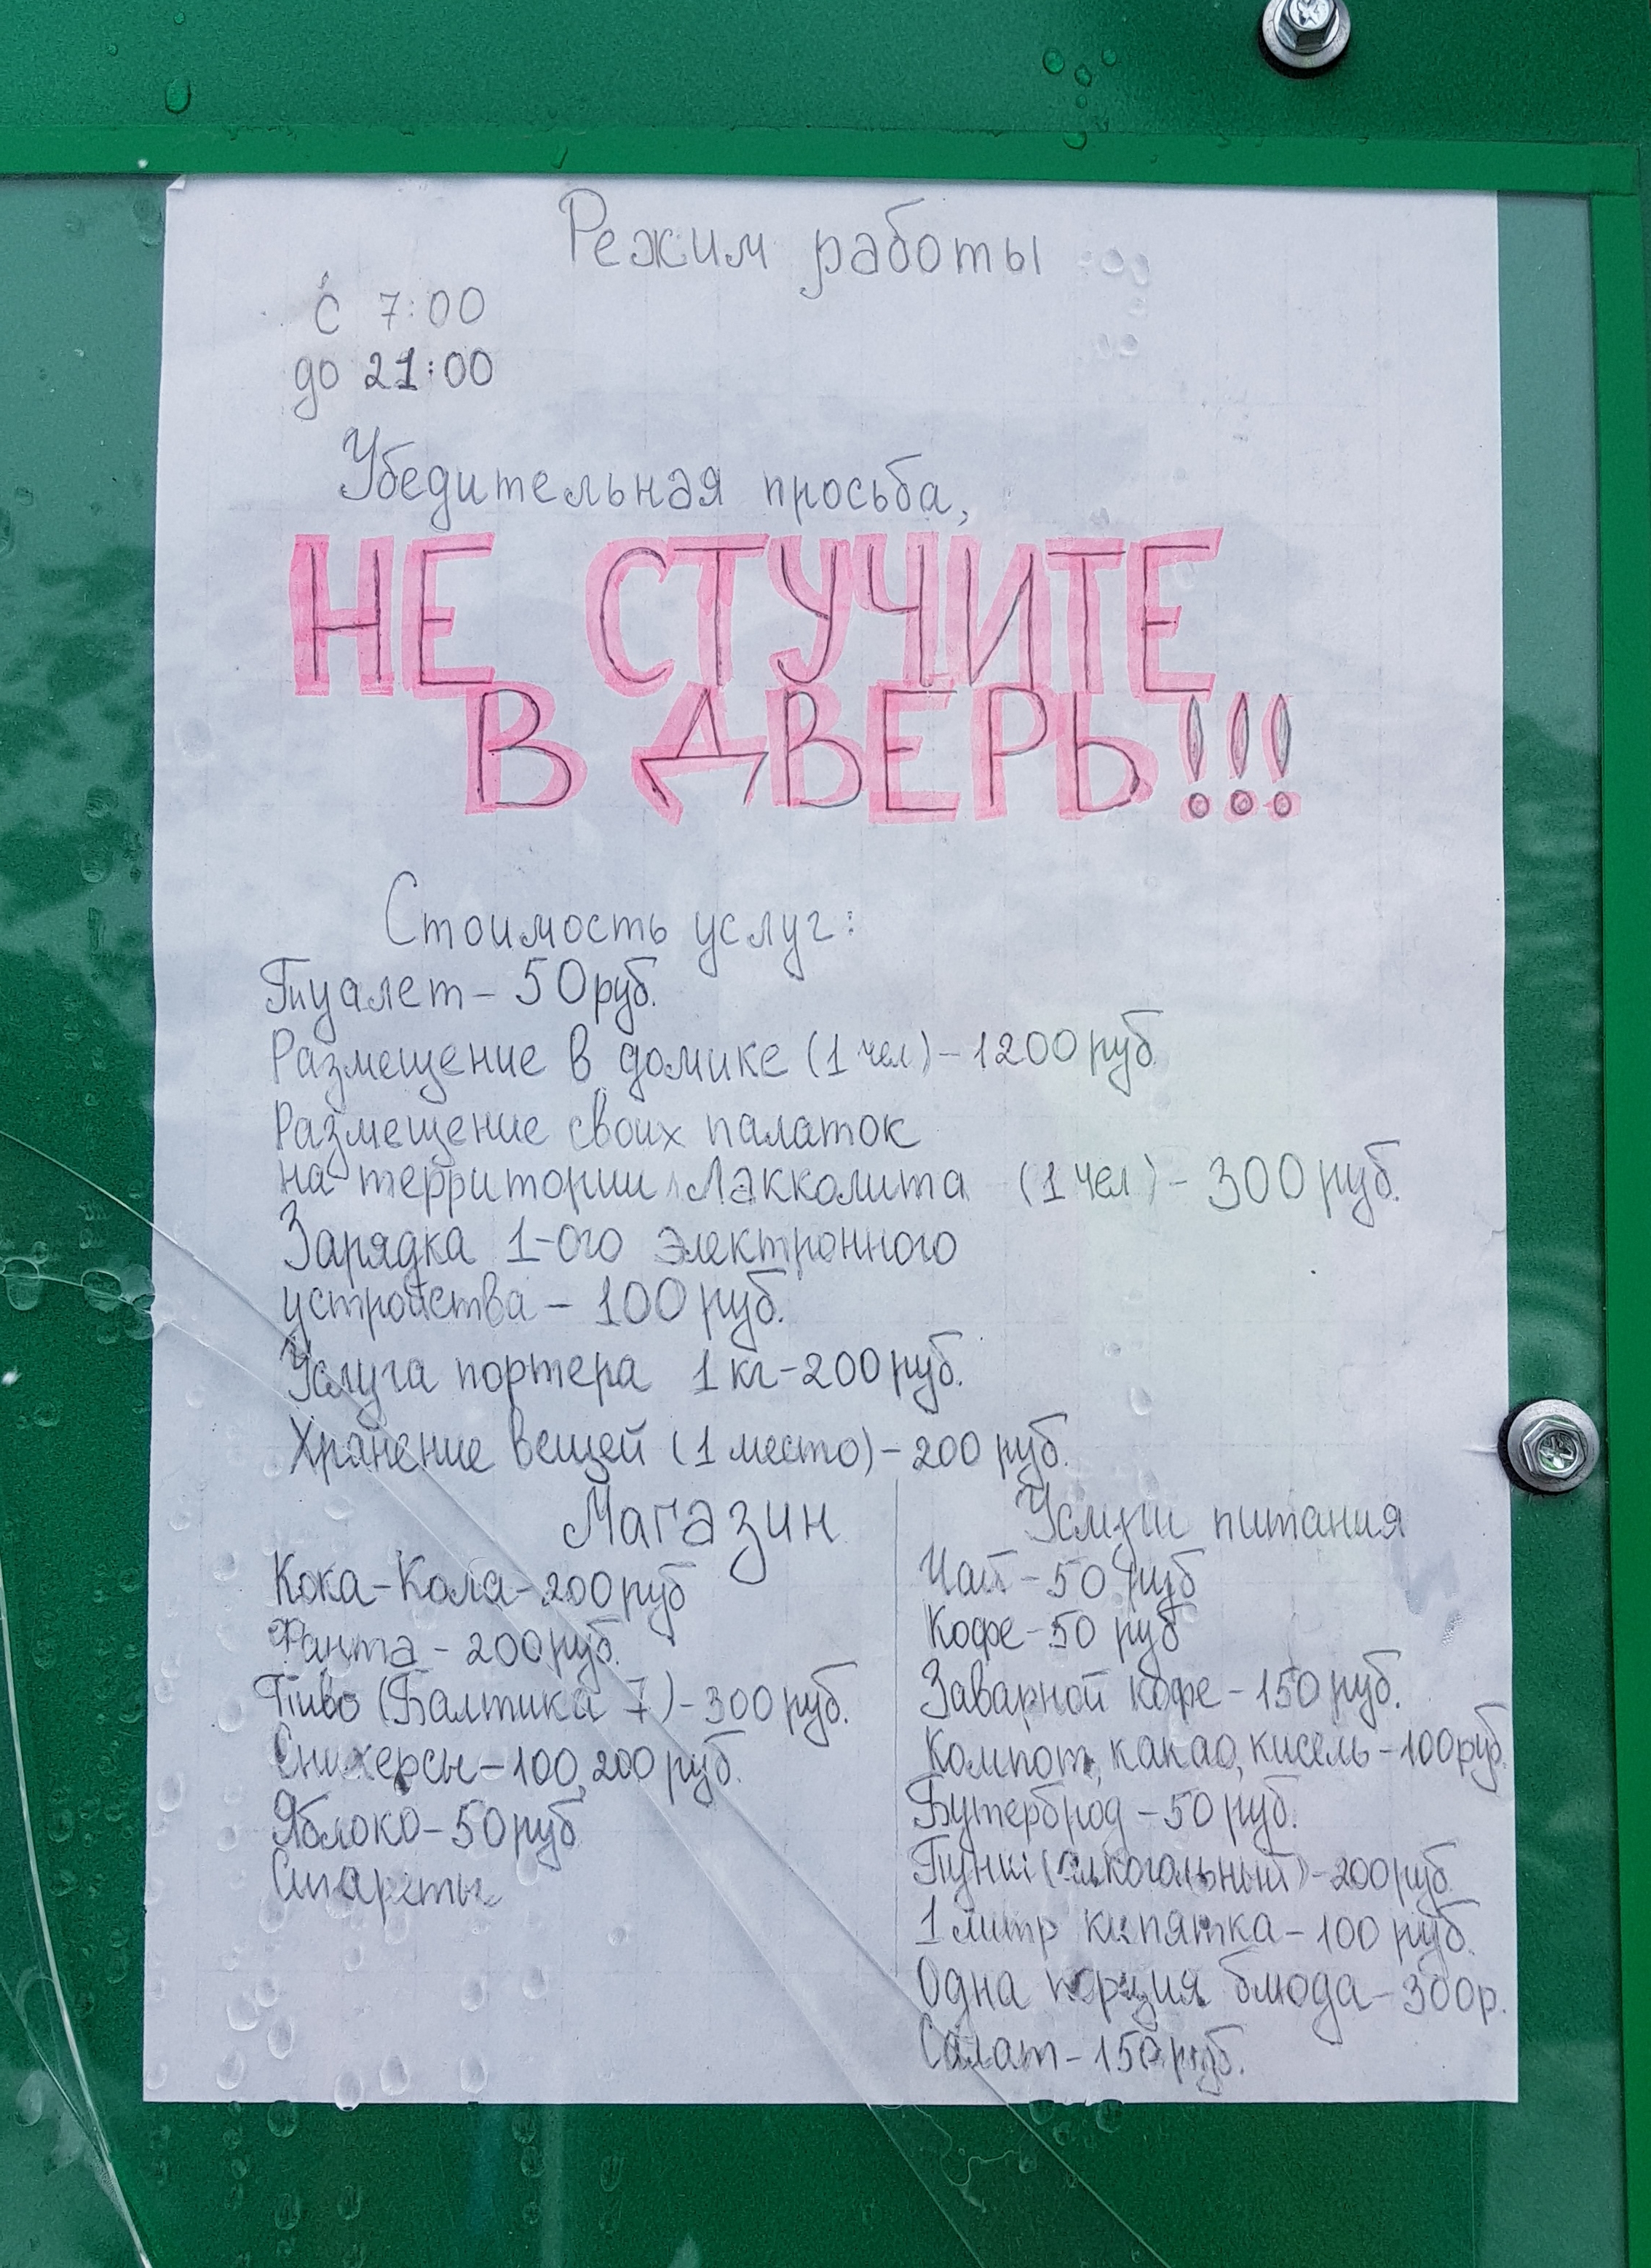 Режим работы
с 7:00
до 21:00
Убедительная просьба,
НЕ СТУЧИТЕ
В ДВЕРЬ!!!
Стоимость услуг:
Туалет - 50 руб.
Размещение в домике (1 чел) - 1200 руб
Размещение своих палаток
на территории Лакколита (1 чел) - 300 руб.
Зарядка 1-ого электронного
устройства - 100 руб.
Услуга портера 1 кг - 200 руб.
Хранение вещей (1 место) - 200 руб.
Магазин
Кока-Кола - 200 руб
Фанта - 200 руб.
Пиво (Балтика 7) - 300 руб.
Сникерсы - 100, 200 руб.
Яблоко - 50 руб
Сигареты
Услуги питания
Чай - 50 руб
Кофе - 50 руб
Заварной кофе - 150 руб.
Компот, какао, кисель - 100 руб.
Бутерброд - 50 руб.
Пунш (алкогольный) - 200 руб.
1 литр кипятка - 100 руб.
Одна порция блюда - 300 р.
Салат - 150 руб.